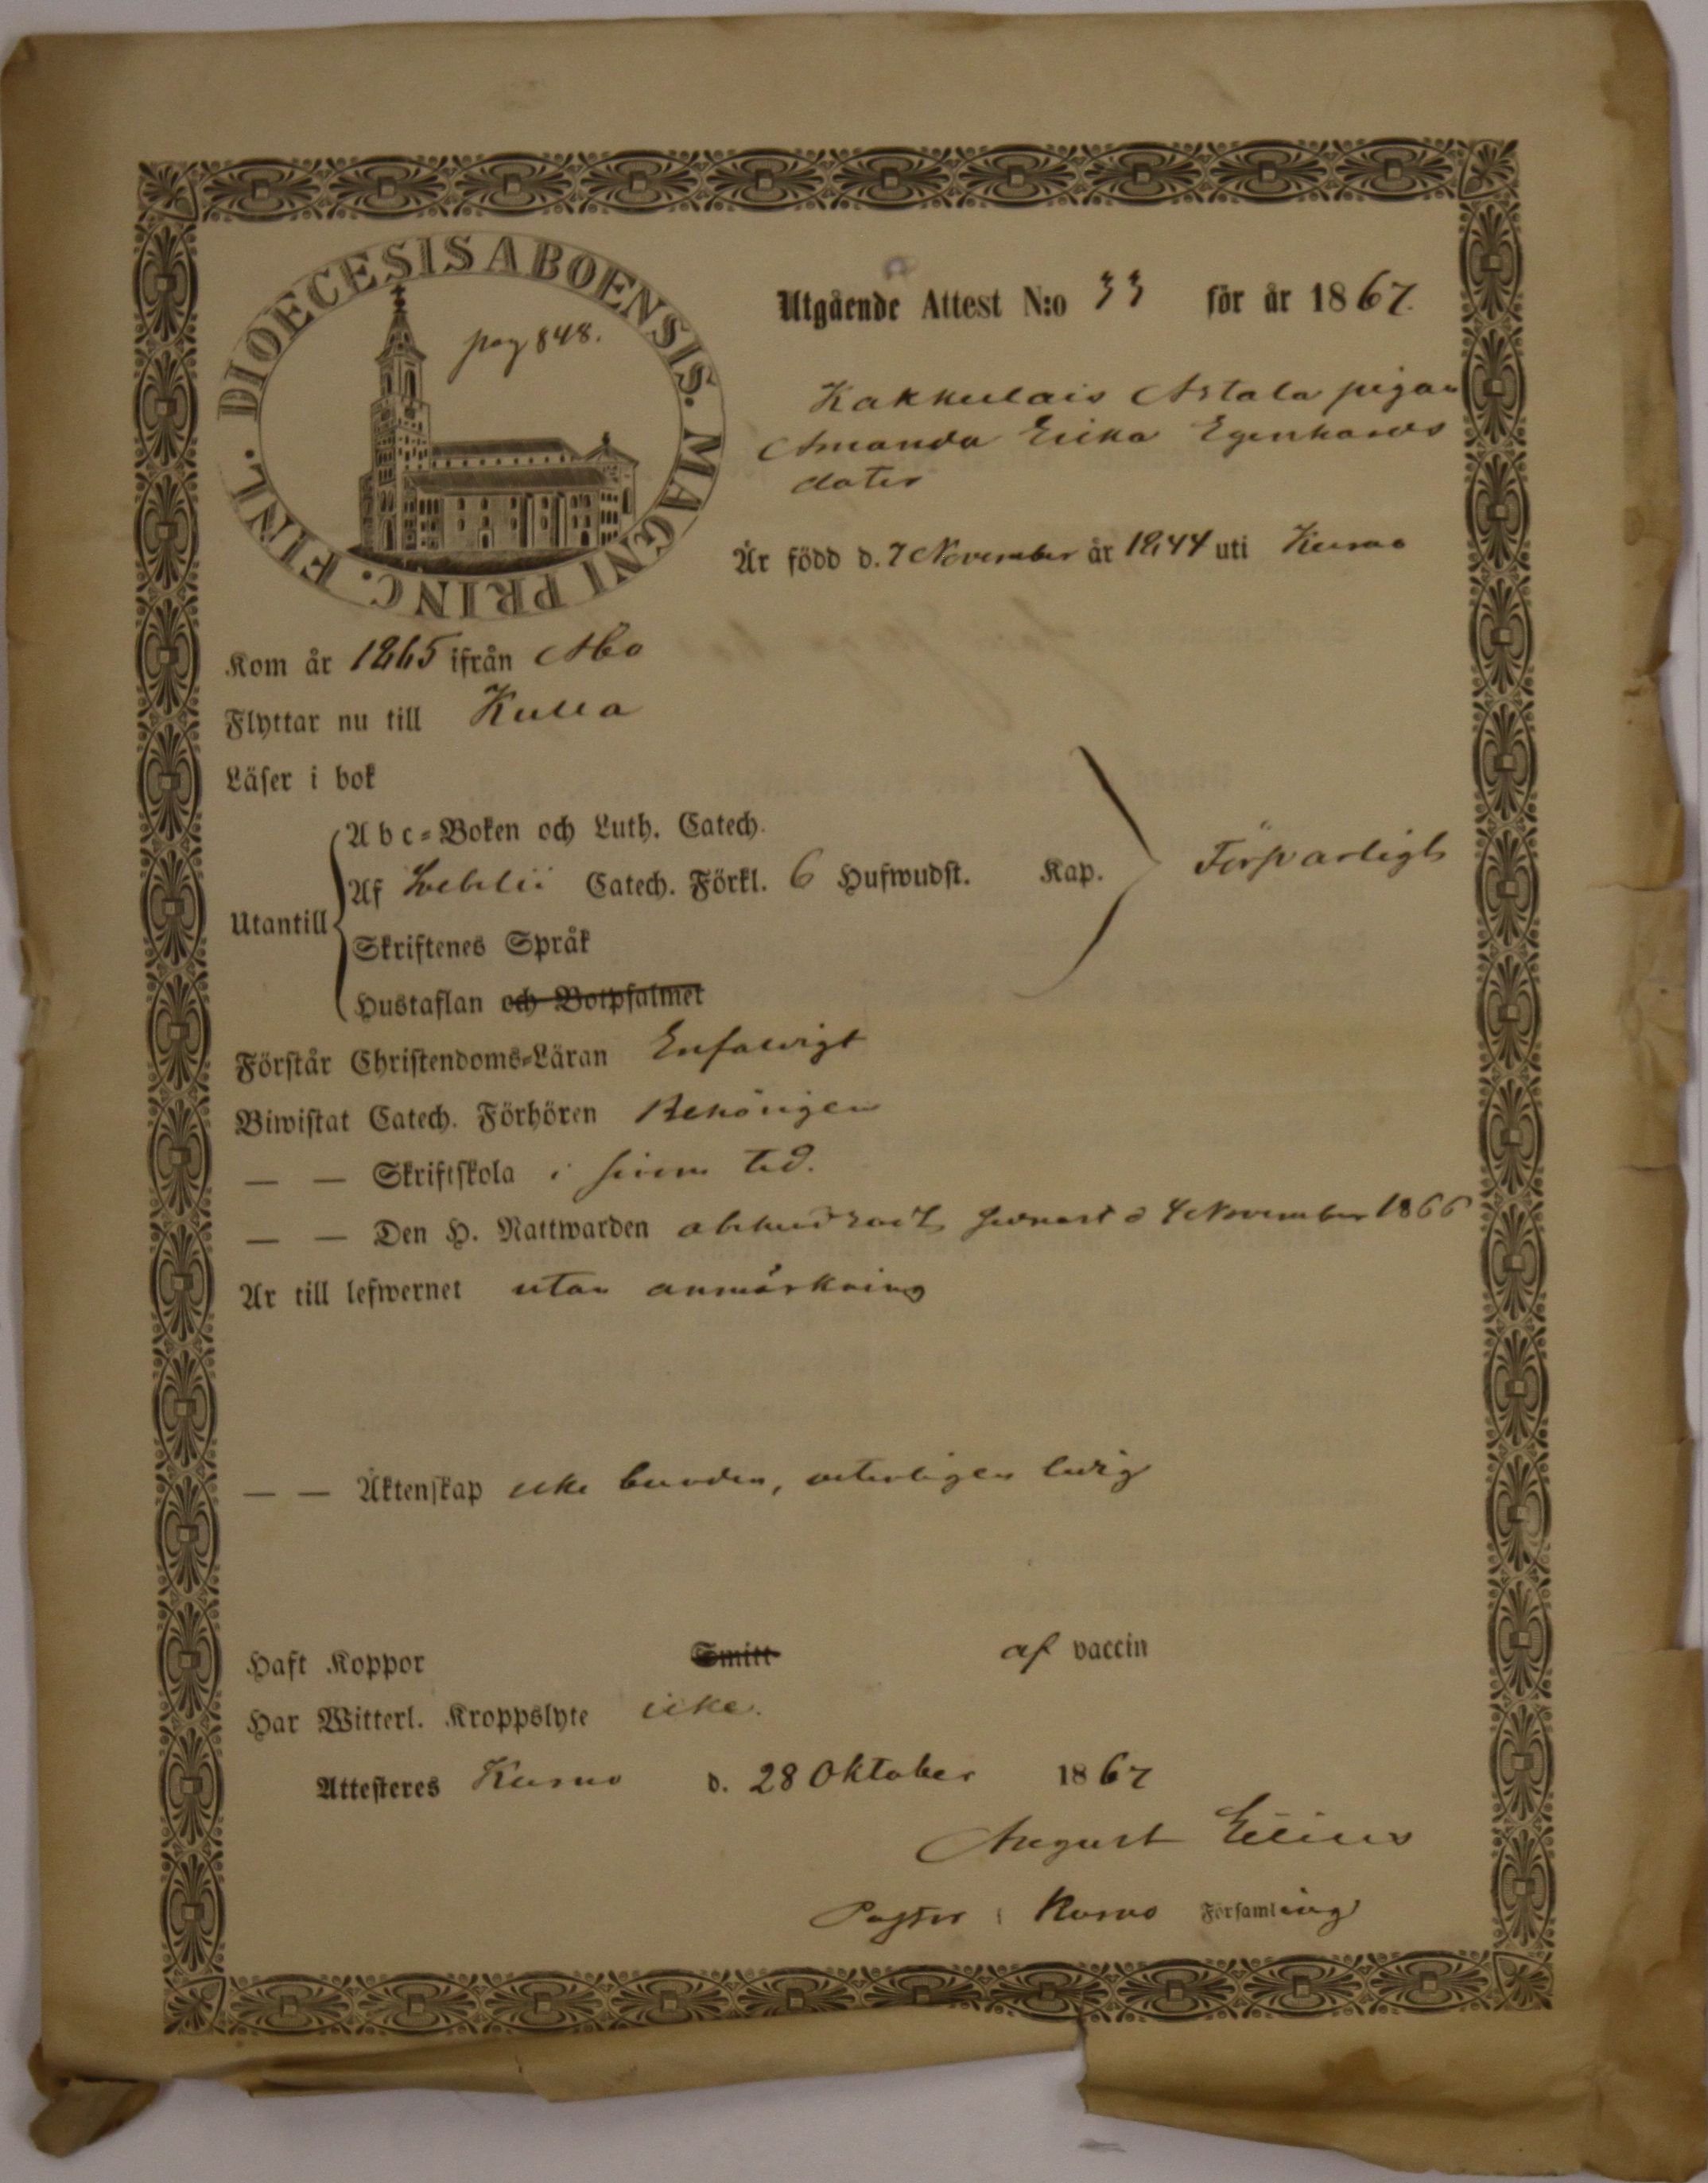 DIOECESIS ABOENSIS. MAGNI PRINC. FINL.
pag 848.
Utgående Attest N:o 33 för år 1867.
Kakkulais Astala pigan
Amanda Erika Egenhards
doter
Är född d. 7 November år 1844 uti Kumo
Kom år 1865 ifrån Åbo
Flyttar nu till Kulla
Läser i bok
Utantill
Abc-Boken och Luth. Catech.
Af Catech. Förkl. 6 Hufwudst. Kap.
Skriftenes Språk
Hustaflan och Botpsalmer
Försvarligt
Förstår Christendoms-Läran Enfaldigt
Biwistat Catech. Förhören Behörigen
— — Skriftskola i sinom tid.
— — Den H. Nattwarden sednast d 4 November 1866
Är till lefwernet utan anmärkning
— — Äktenskap icke bunden, veterligen ledig
Haft Koppor Smitt af vaccin
Har Witterl. Kroppslyte icke.
Attesteres Kumo d. 28 Oktober 1867
August
Pastor i Kumo Församling